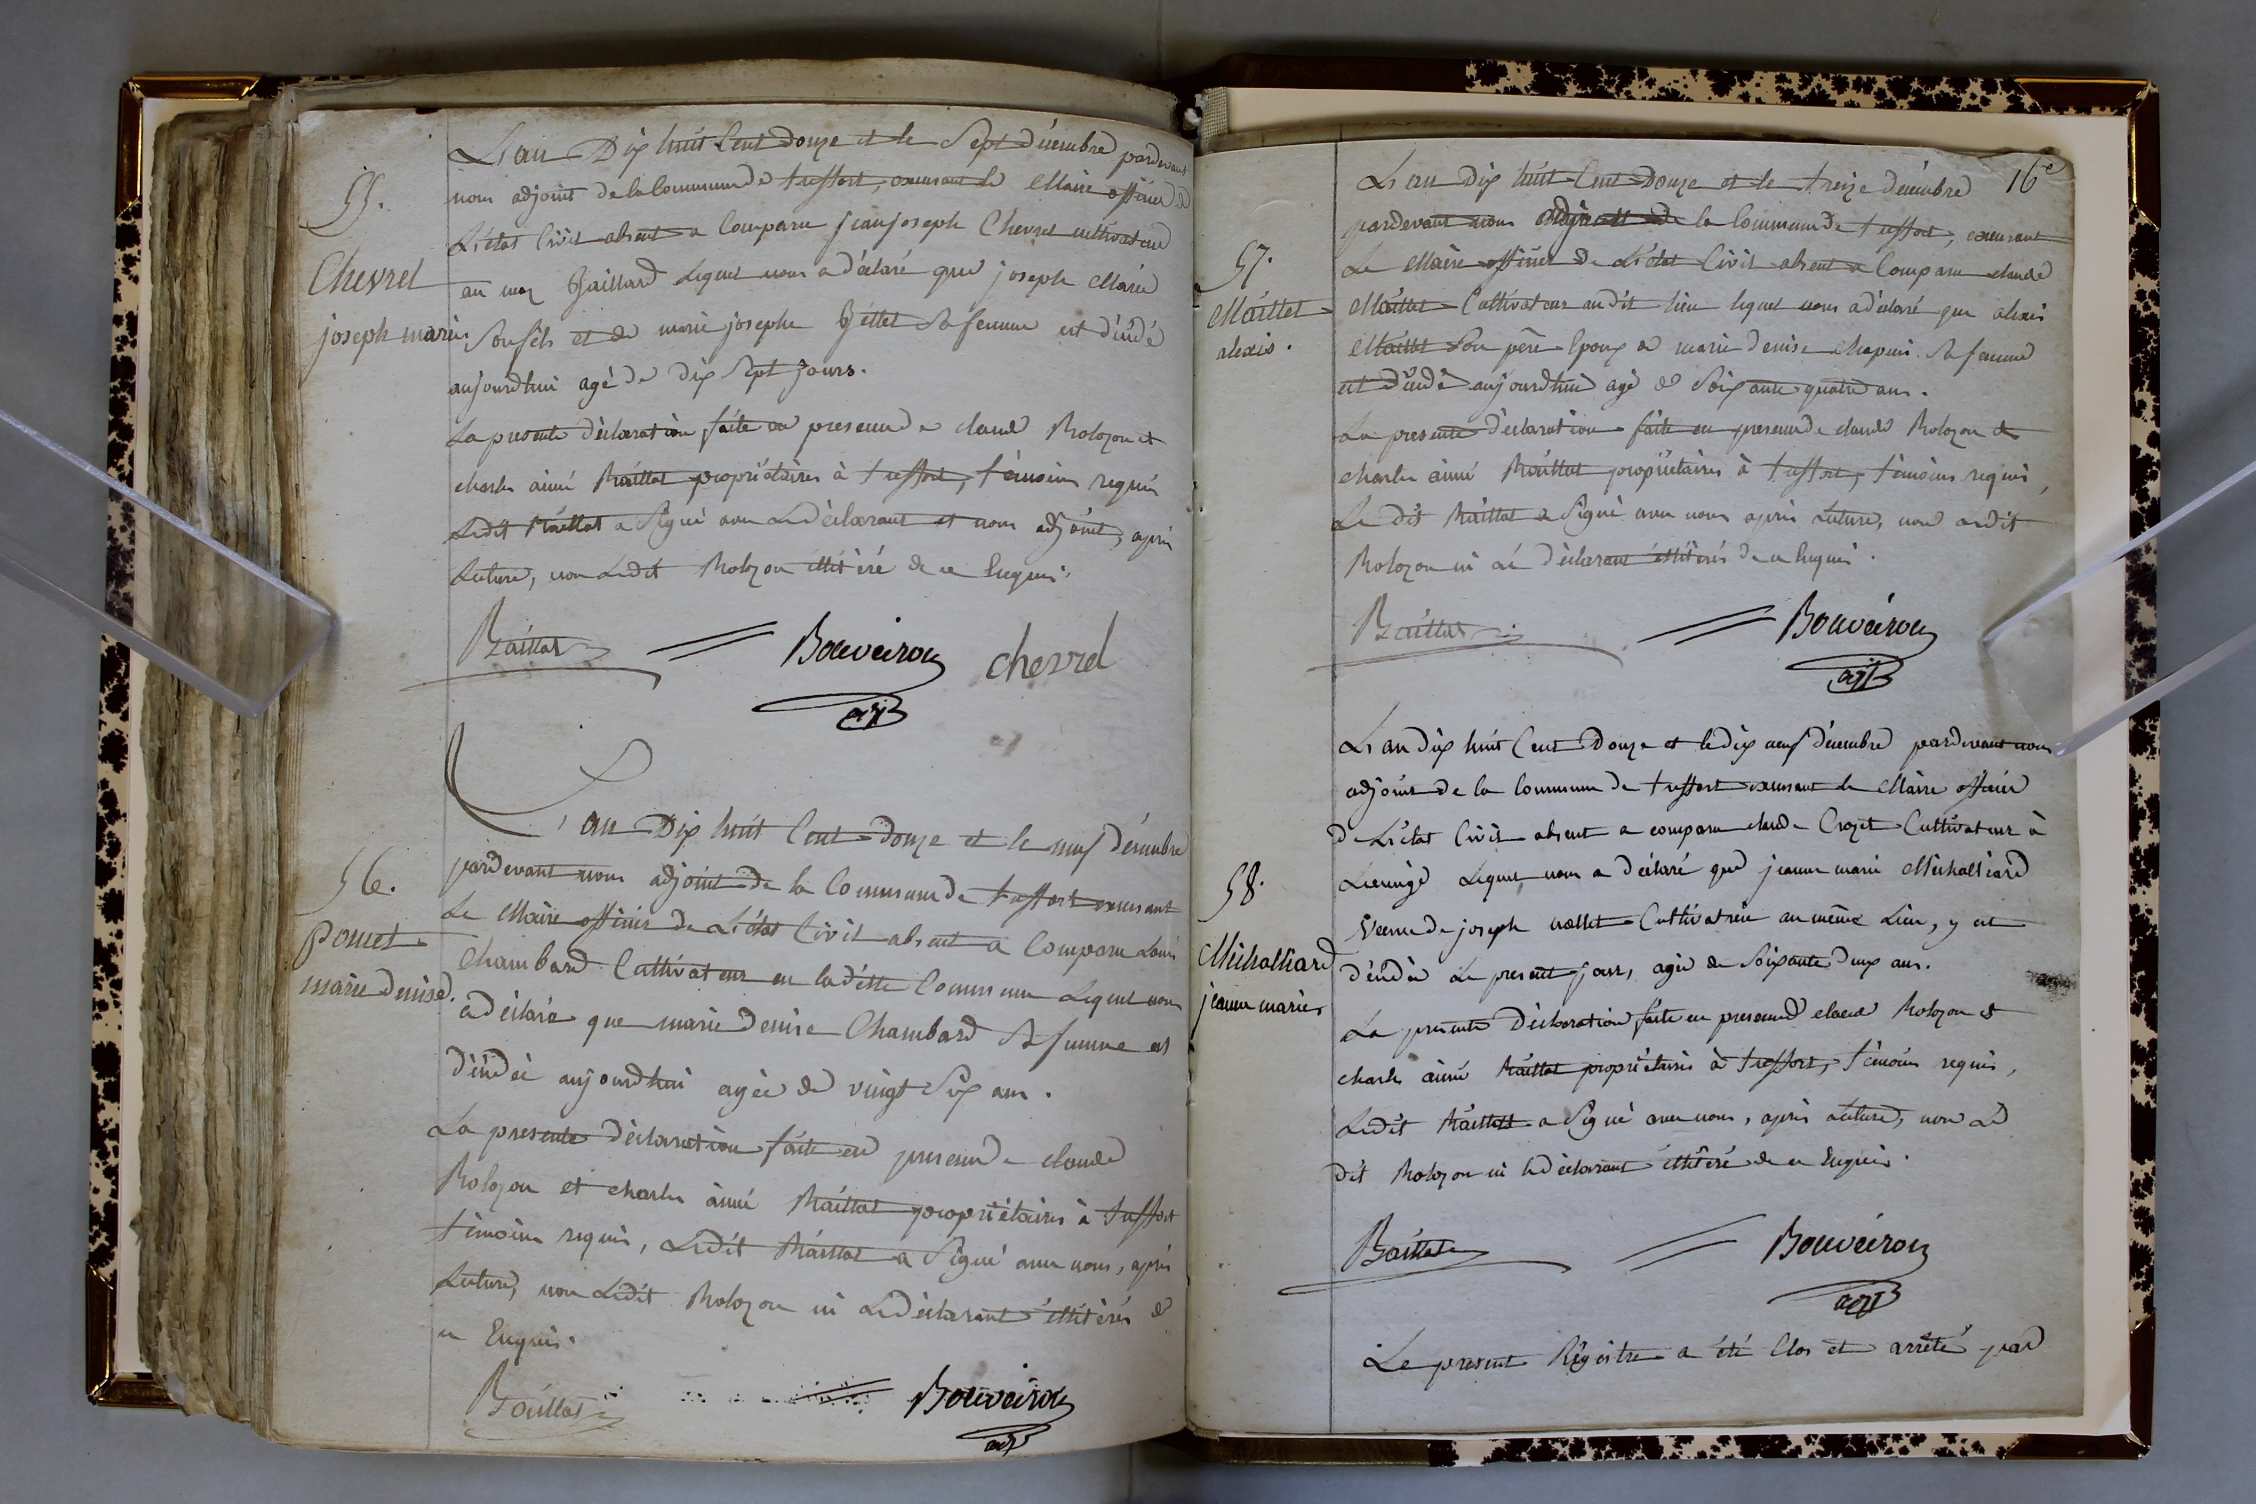 L'an Dix huit Cent Douze et le Sept décembre pardevant
nous adjoint de la Commune de treffort, exersant le Maire officier de
L'état Civil absent a Comparu jean joseph Chevrel cultivateur
au Gaillard Lequel nous a déclaré que joseph Marie
Son fils et de marie josephe sa femme est décédé
aujourdhui agé de Dix Sept jours.
La presente déclaration faite en presence de claude Rolozon et
charles aimé Raillat propriétaires à treffort, témoins requis
Ledit Raillat a Signé avec Le déclarant et nous adjoint, après
Lecture, non Ledit Rolozon illitéré de ce Enquis.
55.
Chevrel
joseph marie
Raillat Bouveiron chevrel
adjt
L'an Dix huit Cent Douze et le neuf décembre
pardevant nous adjoint de la Commune de treffort exersant
Le Maire officier de L'état Civil absent a Comparu Louis
Chambard Cultivateur en la ditte Commune Lequel nous
a déclaré que marie Denise Chambard Sa femme est
décédée aujourdhui agée de vingt Six ans.
La presente déclaration faite en presence de claude
Rolozon et charles aimé Raillat propriétaires à treffort
témoins requis, Ledit Raillat a Signé avec nous, après
Lecture, non Ledit Rolozon ni Le déclarant illitérés de
ce Enquis.
56.
Pomet
marie Denise.
Raillat Bouveiron
adjt
16e
L'an Dix huit Cent Douze et le treize décembre
pardevant nous adjoint de la Commune de treffort, exersant
Le Maire officier de L'état Civil absent a Comparu claude
Maillet Cultivateur audit lieu lequel nous a déclaré que alexis
Maillet Son père Epoux de marie denise Chapuis Sa femme
est décédé aujourdhui agé de Soixante quatre ans.
La presente déclaration faite en presence de claude Rolozon et
charles aimé Raillat propriétaires à treffort, témoins requis,
Le dit Raillat a Signé avec nous après Lecture, non Ledit
Rolozon ni Le déclarant illitérés de ce Enquis.
57.
Maillet
alexis.
Raillat Bouveiron
adjt
L'an dix huit Cent Douze et le dix neuf décembre pardevant nous
adjoint de la Commune de treffort exersant le Maire officier
de L'état Civil absent a comparu claude Crozet Cultivateur à
Lequel nous a déclaré que jeanne marie Michalliard
Veuve de joseph Cultivatrice au même Lieu, y est
décédée Le present jour, agée de Soixante Deux ans.
La presente Déclaration faite en presence claude Rolozon et
charles aimé Raillat propriétaires à treffort, témoins requis,
Ledit Raillat a Signé avec nous, après Lecture, non Le
dit Rolozon ni le déclarant illitéré de ce Enquis.
58.
Michalliard
jeanne marie
Raillat Bouveiron
adjt
Le present Régistre a été Clos et arrêté par